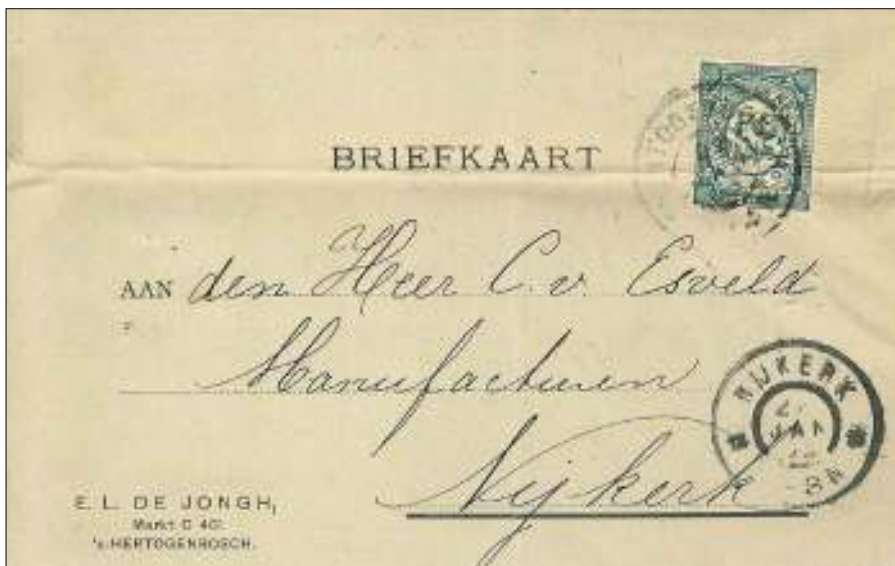 BRIEFKAART
AAN den Heer C. v. Esveld
Manufacturen
Nijkerk
NIJKERK
JAN
8N
E. L. DE JONGH,
Markt C 401.
's-HERTOGENBOSCH.